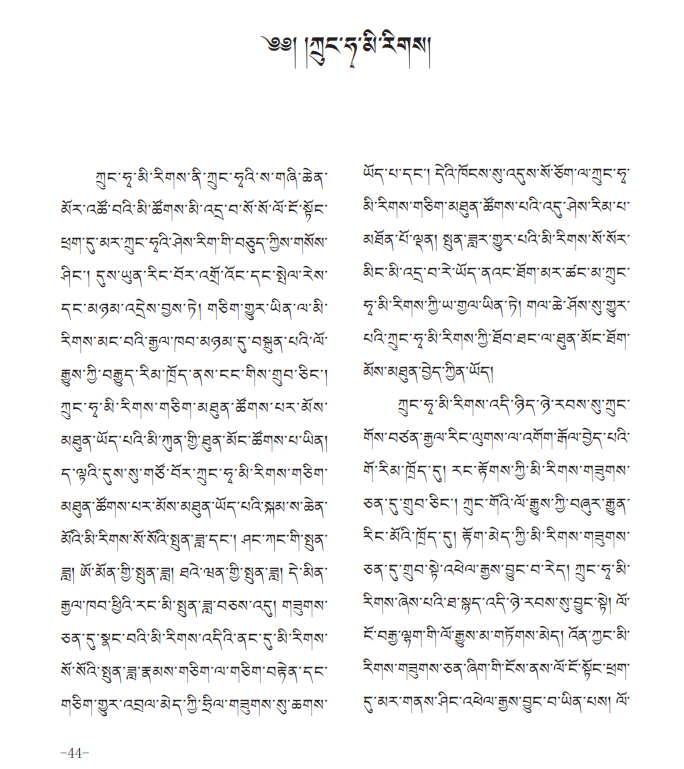 ༄༅། །ཀྲུང་ཧྭ་མི་རིགས།
ཀྲུང་ཧྭ་མི་རིགས་ནི་ཀྲུང་ཧྭའི་ས་གཞི་ཆེན་
མོར་འཚོ་བའི་མི་ཚོགས་མི་འདྲ་བ་སོ་སོ་ལོ་ངོ་སྟོང་
ཕྲག་དུ་མར་ཀྲུང་ཧྭའི་ཤེས་རིག་གི་བཅུད་ཀྱིས་གསོས་
ཤིང་། དུས་ཡུན་རིང་བོར་འགྲོ་འོང་དང་སྤེལ་རེས་
དང་མཉམ་འདྲེས་བྱས་ཏེ། གཅིག་གྱུར་ཡིན་ལ་མི་
རིགས་མང་བའི་རྒྱལ་ཁབ་མཉམ་དུ་བསྐྲུན་པའི་ལོ་
རྒྱུས་ཀྱི་བརྒྱུད་རིམ་ཁྲོད་ནས་ངང་གིས་གྲུབ་ཅིང་།
ཀྲུང་ཧྭ་མི་རིགས་གཅིག་མཐུན་ཚོགས་པར་མོས་
མཐུན་ཡོད་པའི་མི་ཀུན་གྱི་ཐུན་མོང་ཚོགས་པ་ཡིན།
ད་ལྟའི་དུས་སུ་གཙོ་བོར་ཀྲུང་ཧྭ་མི་རིགས་གཅིག་
མཐུན་ཚོགས་པར་མོས་མཐུན་ཡོད་པའི་སྐམ་ས་ཆེན་
མོའི་མི་རིགས་སོ་སོའི་སྤུན་ཟླ་དང་། ཤང་ཀང་གི་སྤུན་
ཟླ། ཨོ་མོན་གྱི་སྤུན་ཟླ། ཐའེ་ཝན་གྱི་སྤུན་ཟླ། དེ་མིན་
རྒྱལ་ཁབ་ཕྱིའི་རང་མི་སྤུན་ཟླ་བཅས་འདུ། གཟུགས་
ཅན་དུ་སྣང་བའི་མི་རིགས་འདིའི་ནང་དུ་མི་རིགས་
སོ་སོའི་སྤུན་ཟླ་རྣམས་གཅིག་ལ་གཅིག་བརྟེན་དང་
གཅིག་གྱུར་འབྲལ་མེད་ཀྱི་ཧྲིལ་གཟུགས་སུ་ཆགས་
ཡོད་པ་དང་། དེའི་ཁོངས་སུ་འདུས་སོ་ཅོག་ལ་ཀྲུང་ཧྭ་
མི་རིགས་གཅིག་མཐུན་ཚོགས་པའི་འདུ་ཤེས་རིམ་པ་
མཐོན་པོ་ལྡན། སྤུན་ཟླར་གྱུར་པའི་མི་རིགས་སོ་སོར་
མིང་མི་འདྲ་བ་རེ་ཡོད་ནའང་ཐོག་མར་ཚང་མ་ཀྲུང་
ཧྭ་མི་རིགས་ཀྱི་ཡ་གྱལ་ཡིན་ཏེ། གལ་ཆེ་ཤོས་སུ་གྱུར་
པའི་ཀྲུང་ཧྭ་མི་རིགས་ཀྱི་ཐོབ་ཐང་ལ་ཐུན་མོང་ཐོག་
མོས་མཐུན་བྱེད་ཀྱིན་ཡོད།
ཀྲུང་ཧྭ་མི་རིགས་འདི་ཉིད་ཉེ་རབས་སུ་ཀྲུང་
གོས་བཙན་རྒྱལ་རིང་ལུགས་ལ་འགོག་རྒོལ་བྱེད་པའི་
གོ་རིམ་ཁྲོད་དུ། རང་རྟོགས་ཀྱི་མི་རིགས་གཟུགས་
ཅན་དུ་གྲུབ་ཅིང་། ཀྲུང་གོའི་ལོ་རྒྱུས་ཀྱི་བཞུར་རྒྱུན་
རིང་མོའི་ཁྲོད་དུ། རྟོག་མེད་ཀྱི་མི་རིགས་གཟུགས་
ཅན་དུ་གྲུབ་སྟེ་འཕེལ་རྒྱས་བྱུང་བ་རེད། ཀྲུང་ཧྭ་མི་
རིགས་ཞེས་པའི་ཐ་སྙད་འདི་ཉེ་རབས་སུ་བྱུང་སྟེ། ལོ་
ངོ་བརྒྱ་ལྷག་གི་ལོ་རྒྱུས་མ་གཏོགས་མེད། འོན་ཀྱང་མི་
རིགས་གཟུགས་ཅན་ཞིག་གི་ངོས་ནས་ལོ་ངོ་སྟོང་ཕྲག་
དུ་མར་གནས་ཤིང་འཕེལ་རྒྱས་བྱུང་བ་ཡིན་པས། ལོ་
-44-